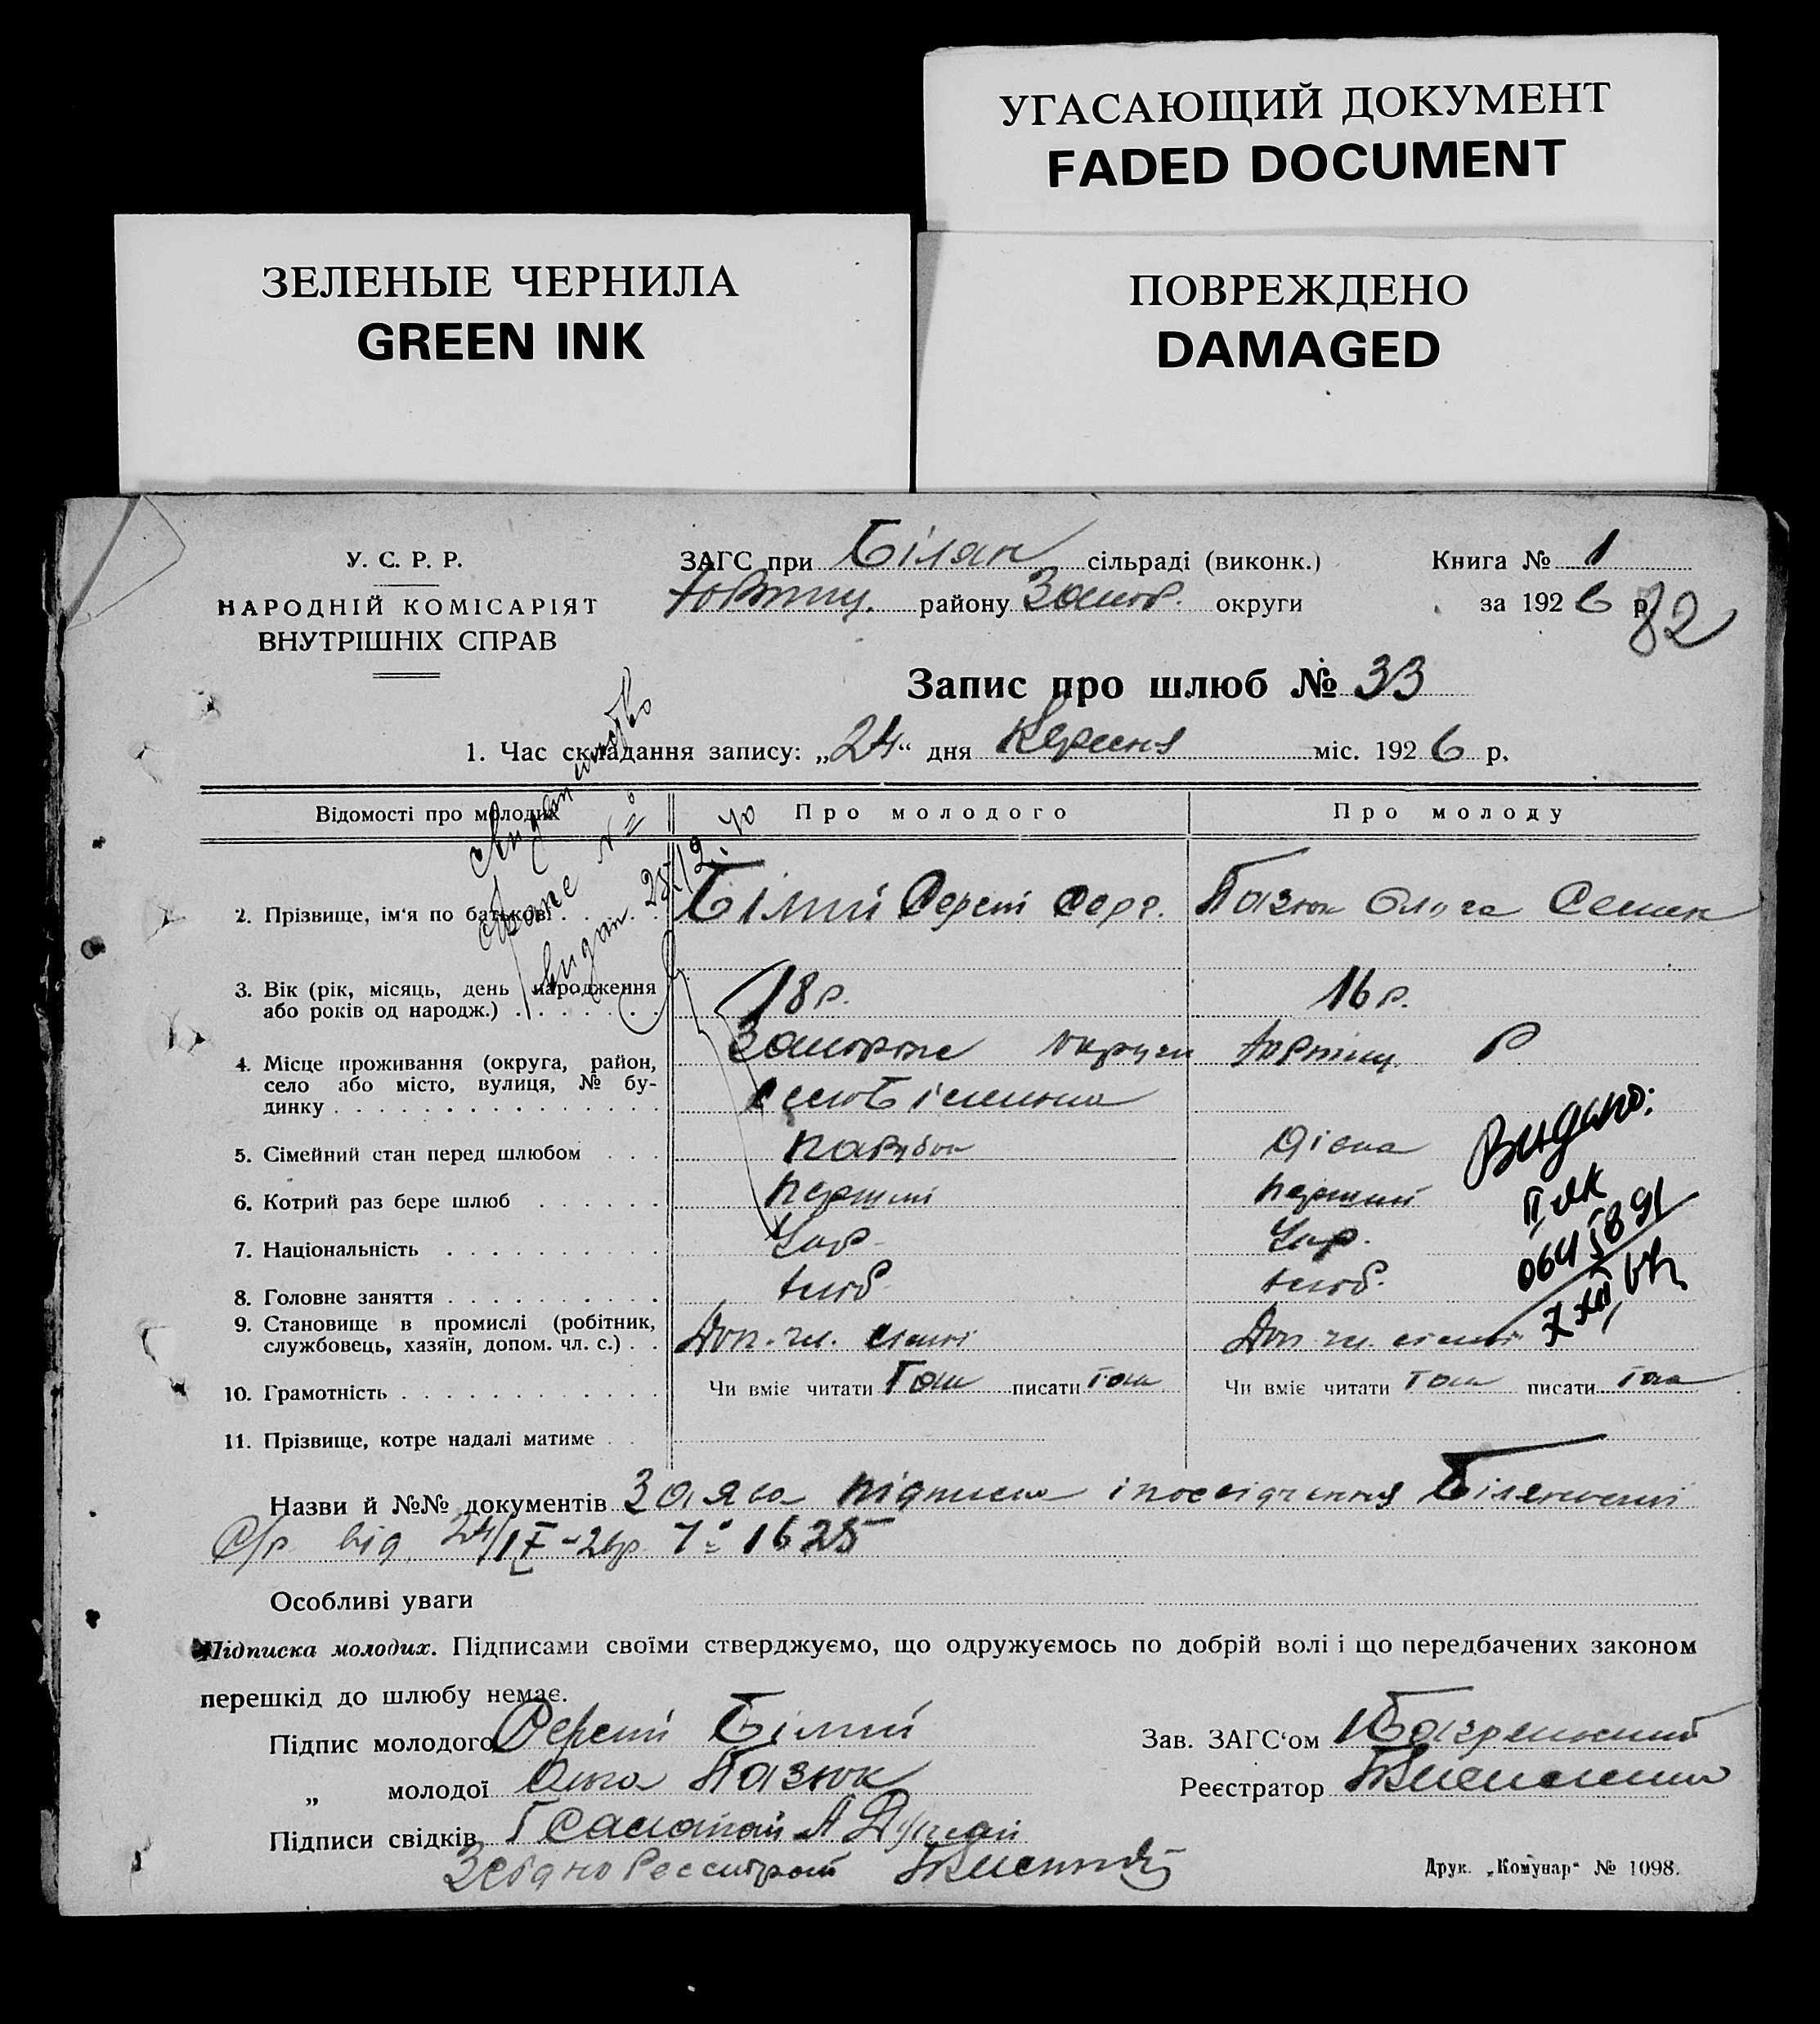 УГАСАЮЩИЙ ДОКУМЕНТ
FADED DOCUMENT
ЗЕЛЕНЫЕ ЧЕРНИЛА
GREEN INK
ПОВРЕЖДЕНО
DAMAGED
У. С. Р. Р.
НАРОДНІЙ КОМІСАРІЯТ
ВНУТРІШНІХ СПРАВ
ЗАГС при Білян сільраді (виконк.)
району Запор. округи
Книга № 1
за 1926 р.
82
Запис про шлюб № 33
1. Час складання запису: „24“ дня Вересня міс. 1926 р.
Відомості про молодих Про молодого Про молоду
2. Прізвище, ім‘я по батькові Білий Сергій Серг. Пазюк Ольга Семен
3. Вік (рік, місяць, день народження
або років од народж.) 18 р. 16 р.
4. Місце проживання (округа, район,
село або місто, вулиця, № бу-
динку Запоріж округи Р
село Біленька
5. Сімейний стан перед шлюбом парубок дівка
6. Котрий раз бере шлюб перший перший
7. Національність Укр. Укр.
8. Головне заняття хліб. хліб.
9. Становище в промислі (робітник,
службовець, хазяїн, допом. чл. с.) Доп. чл. сімї Доп. чл. сімї
10. Грамотність Чи вміє читати Так писати так Чи вміє читати Так писати так
11. Прізвище, котре надалі матиме
Видано:
Назви й №№ документів Заява підписка і посвідчення Біленької
С/р від 24/IX-26р № 1625
Особливі уваги
Підписка молодих. Підписами своїми стверджуємо, що одружуємось по добрій волі і що передбачених законом
перешкід до шлюбу немає.
Підпис молодого Сергій Білий
Зав. ЗАГС‘ом
„ молодої Ольга Пазюк
Реєстратор
Підписи свідків
Згідно
Друк. „Комунар“ № 1098.